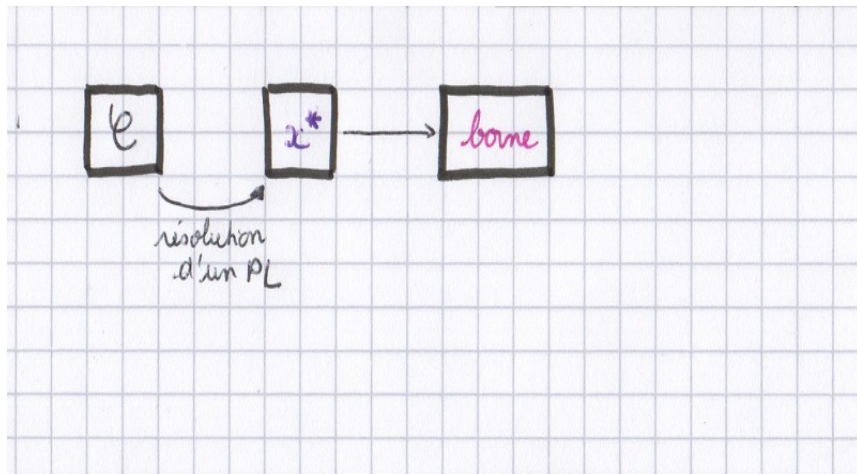 𝒞 x* borne
résolution
d'un PL